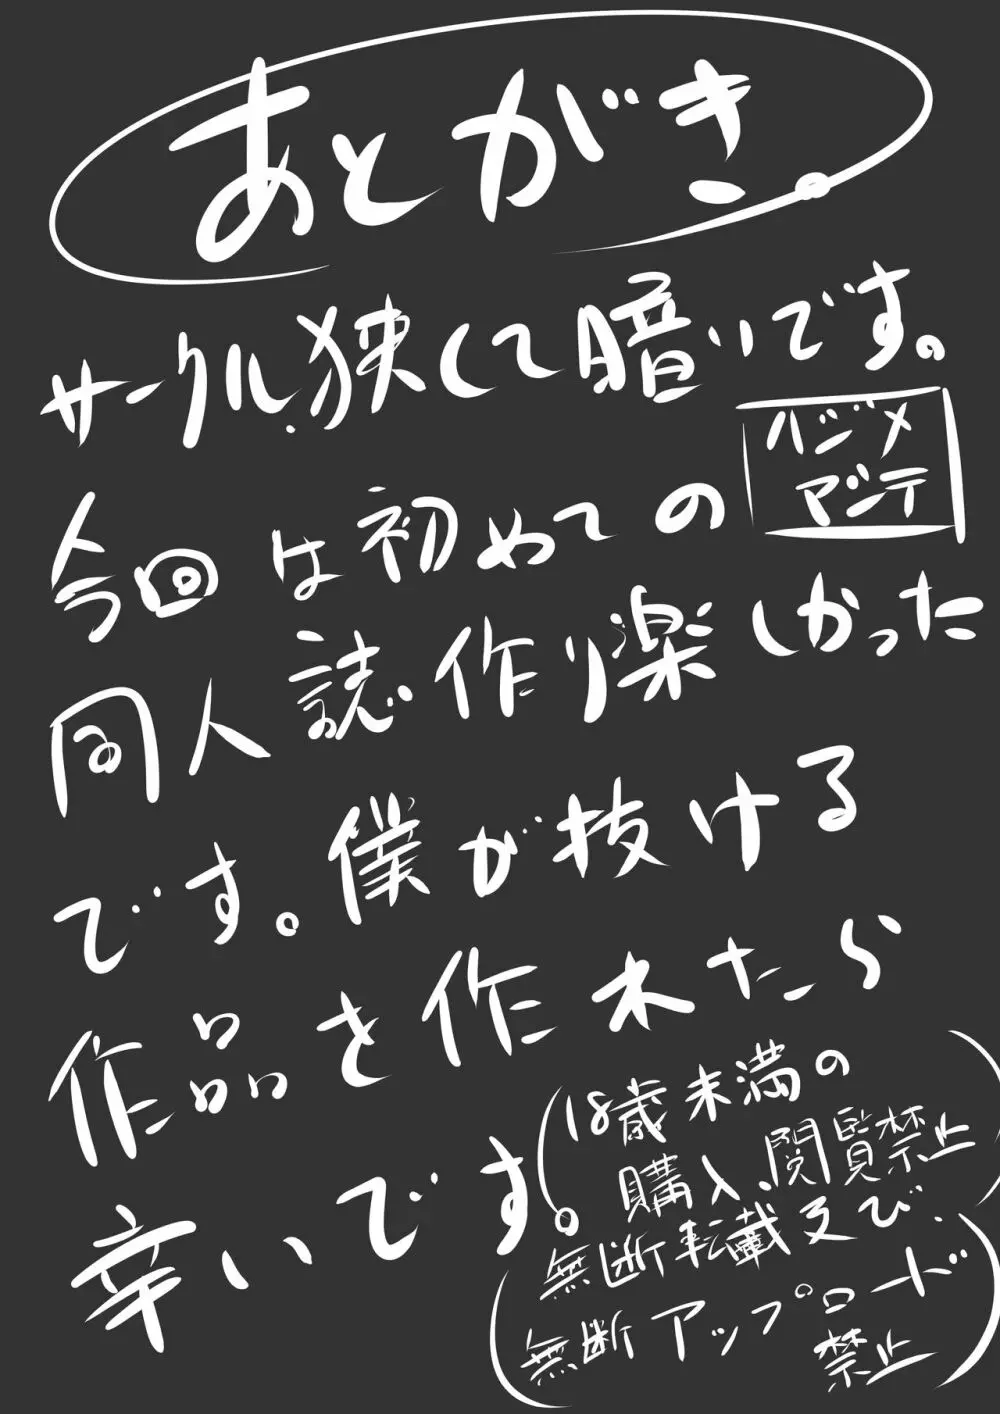 あとがき。
サークル、狭くて暗いです。
ハジメ
マシテ
今回は初めての
同人誌作り楽しかった
です。僕が抜ける
作品を作れたら
幸いです。
(18歳未満の
購入、閲覧禁止)
(無断転載及び、
無断アップロード
禁止)